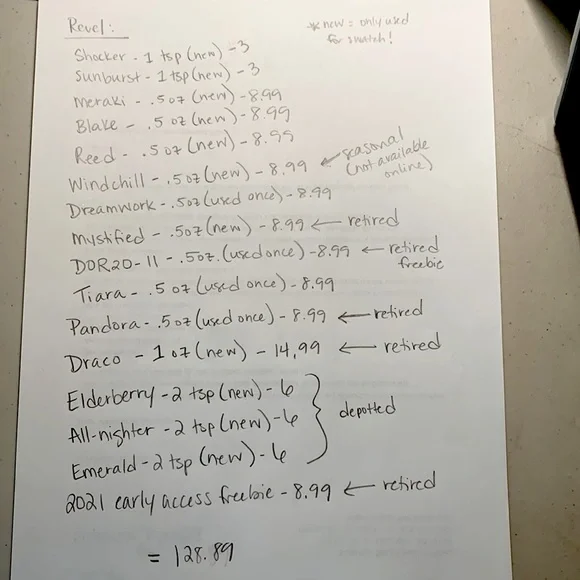 Revel:
* new = only used
for swatch!
Shocker - 1 tsp (new) - 3
Sunburst - 1 tsp (new) - 3
Meraki - .5oz (new) - 8.99
Blake - .5oz (new) - 8.99
Reed - .5oz (new) - 8.99
Windchill - .5oz (new) - 8.99 ← seasonal
(not available
online)
Dreamwork - .5oz (used once) - 8.99
Mystified - .5oz (new) - 8.99 ← retired
DOR20-11 - .5oz. (used once) - 8.99 ← retired
freebie
Tiara - .5oz (used once) - 8.99
Pandora - .5oz (used once) - 8.99 ← retired
Draco - 1oz (new) - 14.99 ← retired
Elderberry - 2 tsp (new) - 6
All-nighter - 2 tsp (new) - 6
depotted
Emerald - 2 tsp (new) - 6
2021 early access freebie - 8.99 ← retired
= 128.89